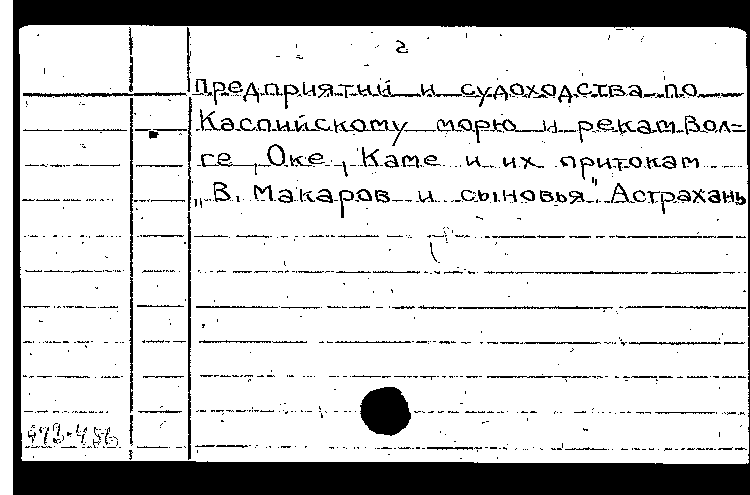 2
предприятий и судоходства по
Каспийскому морю и рекам Вол=
ге, Оке, Каме и их притокам
„В. Макаров и сыновья". Астрахань
473-456